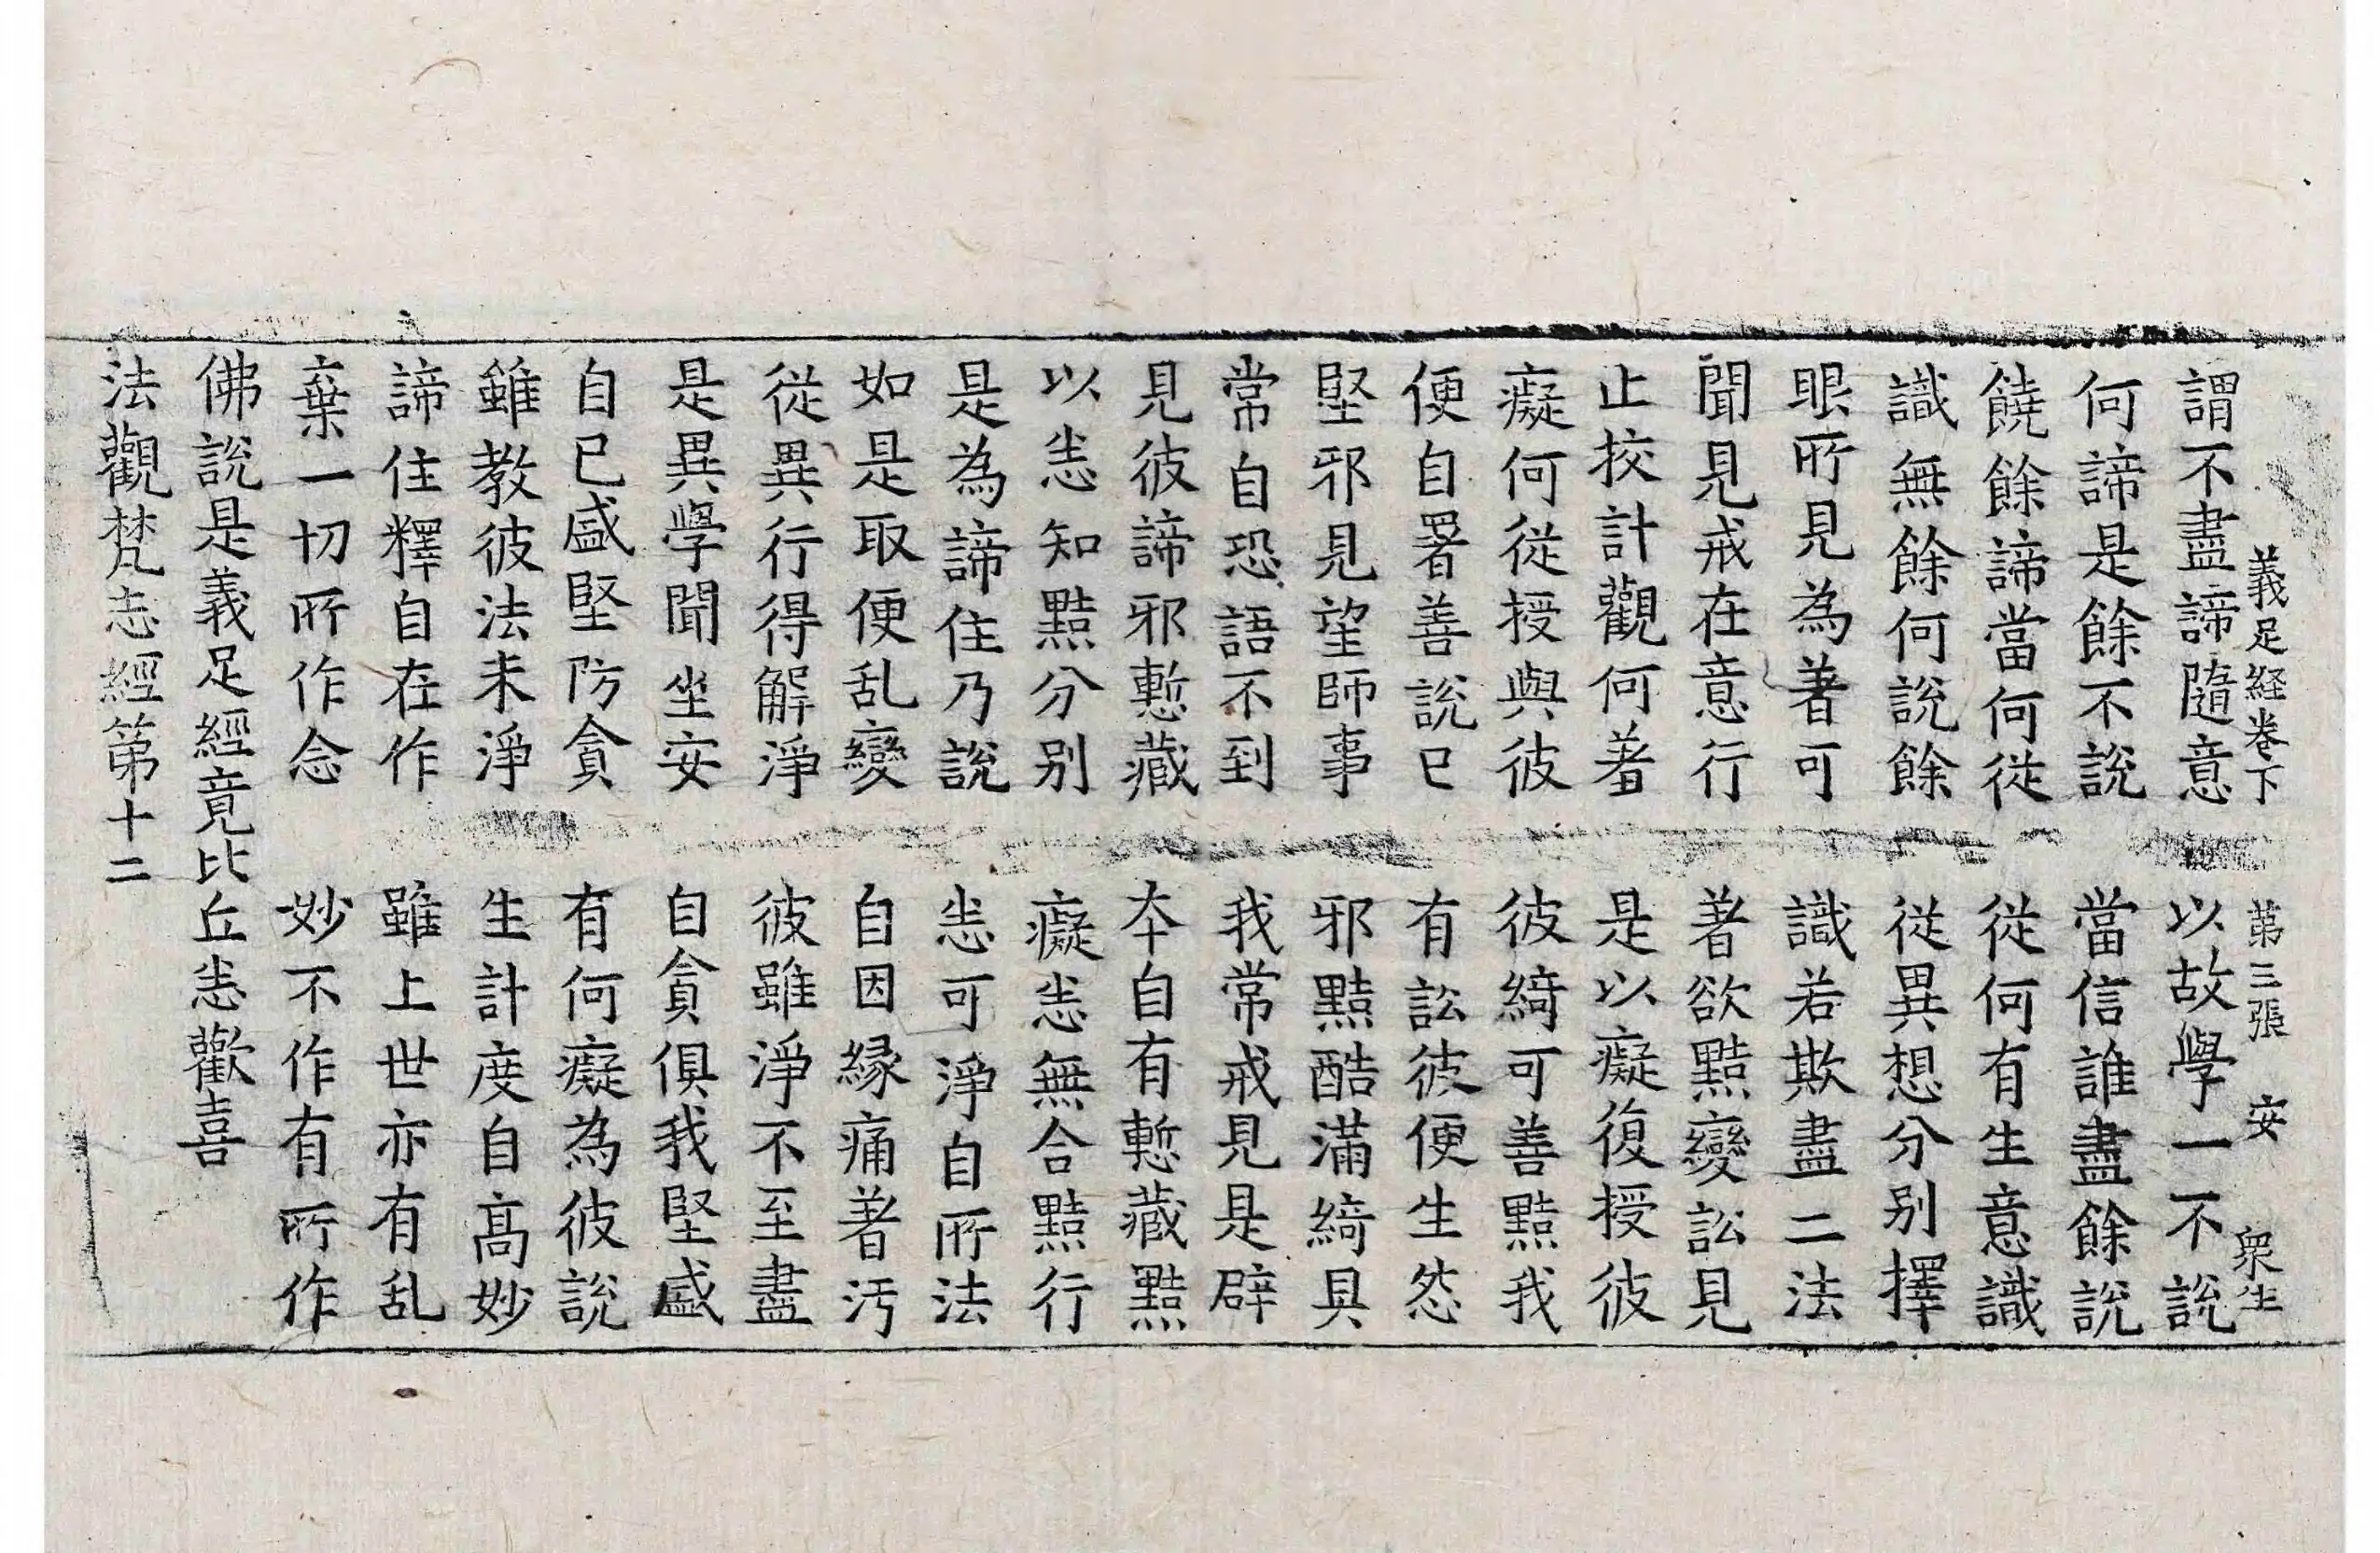 義足経卷下 第三張 安 衆生
謂不盡諦隨意 以故學一不說
何諦是餘不說 當信誰盡餘說
饒餘諦當何從 從何有生意識
識無餘何說餘 從異想分别擇
眼所見為著可 識若欺盡二法
聞見戒在意行 著欲黠變訟見
止挍計觀何羞 是以癡復授彼
癡何從授與彼 彼綺可善黠我
便自署善說已 有訟彼便生怨
堅邪見望師事 邪黠酷滿綺具
常自恐語不到 我常戒見是辟
見彼諦邪慙藏 本自有慙藏黠
以恚知黠分别 癡恚無合黠行
是為諦住乃說 恚可淨自所法
如是取便乱變 自因緣痛著汚
從異行得解淨 彼雖淨不至盡
是異學聞坐安 自貪俱我堅盛
自已盛堅防貪 有何癡為彼說
雖教彼法未淨 生計度自高妙
諦住釋自在作 雖上世亦有乱
棄一切所作念 妙不作有所作
佛說是義足經竟比丘恚歡喜
法觀梵志經第十二